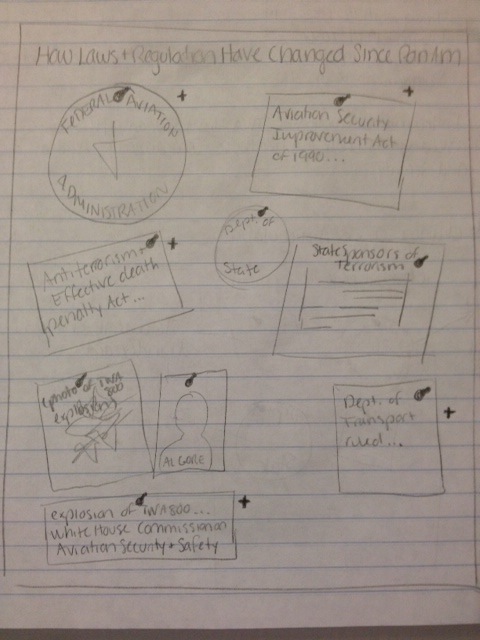 How Laws + Regulation Have Changed Since Pan Am
FEDERAL AVIATION
ADMINISTRATION
Aviation Security
Improvement Act
of 1990...
Dept. of
State
Antiterrorism +
Effective death
penalty Act...
State Sponsors of
Terrorism
photo of TWA
800
explosion
AL GORE
Dept. of
Transport
ruled...
explosion of TWA800...
White House Commission on
Aviation Security + Safety